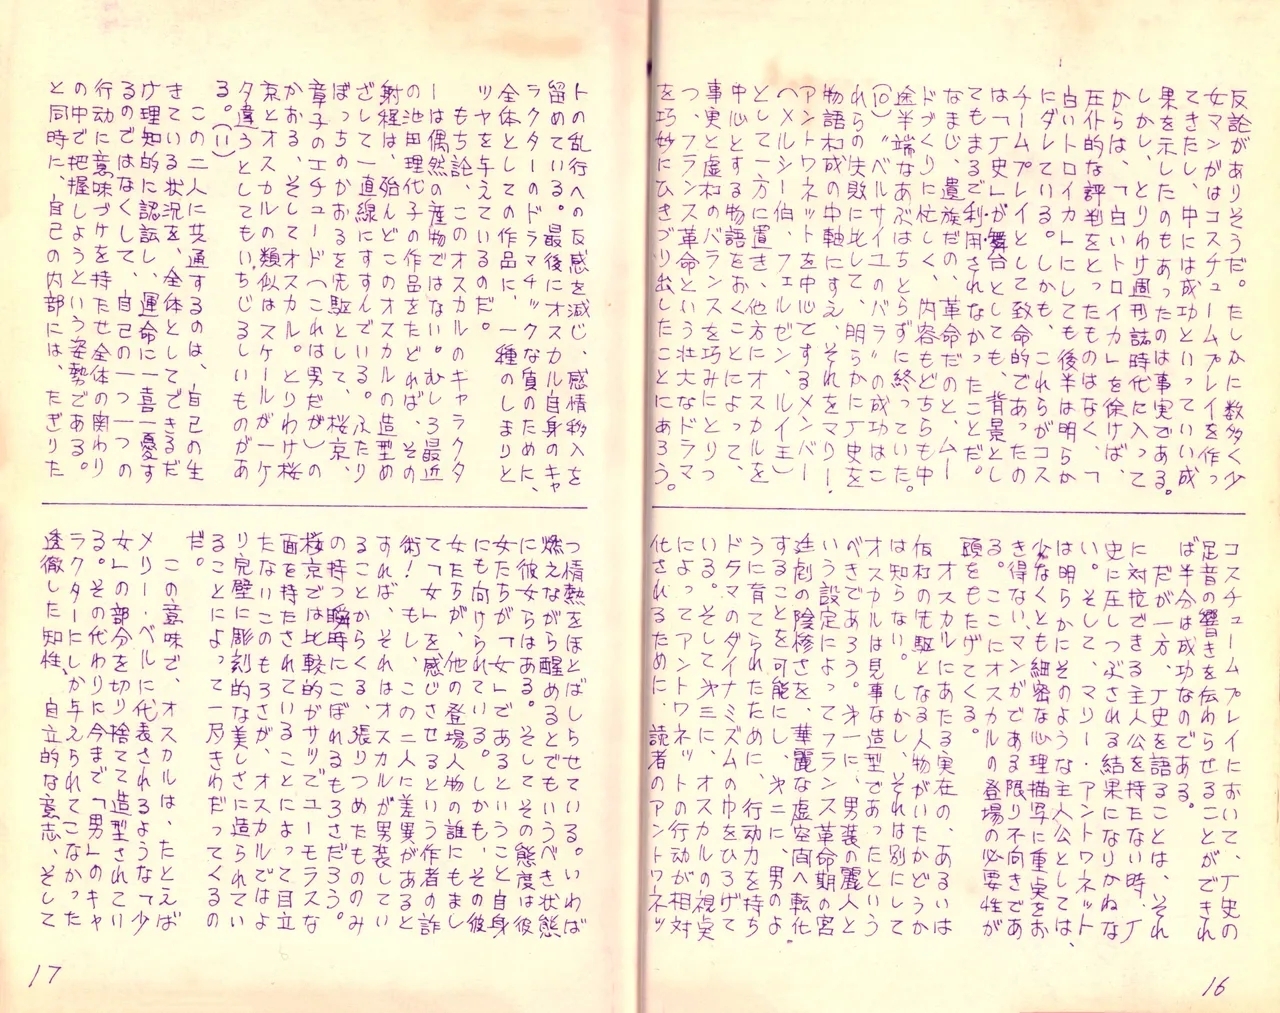 反論がありそうだ。たしかに数多く少
女マンガはコスチュームプレイを作っ
てきたし、中には成功といっていい成
果を示したのもあったのは事実である。
しかし、とりわけ週刊誌時代に入って
からは、「白いトロイカ」を徐けば、
圧仆的な評判をとったものはなく、「
白いトロイカ」にしても後半は明らか
にダレている。しかも、これらがコス
チームプレイとして致命的であったの
は「丁史」が舞台としても、背景とし
てもまるで利用されなかったことだ。
なまじ、遺族だの、革命だのと、ムー
ドづくりに忙しく、内容もどちらも中
途半端なあぶはちとらずに終っていた。
(10)〝ベルサイユのバラ〟の成功はこ
れらの失敗に比して、明らかに丁史を
物語构成の中軸にすえ、それをマリー・
アントワネットを中心てするメンバー
(メルシー伯、フェルゼン、ルイ王)
として一方に置き、他方にオスカルを
中心とする物語をおくことによって、
事実と虚构のバランスを巧みにとりつ
つ、フランス革命という壮大なドラマ
を巧妙にひきづり出したことにあろう。
コスチュームプレイにおいて、丁史の
足音の響きを伝わらせることができれ
ば半分は成功なのである。
だが一方、丁史を語ることは、それ
に対抗できる主人公を持たない時、丁
史に圧しつぶされる結果になりかねな
い。そして、マリー・アントワネット
は明らかにそのような主人公としては、
少なくとも細密な心理描写に重臭をお
き得ないマンガである限り不向きであ
る。ここにオスカルの登場の必要性が
頭をもたげてくる。
オスカルにあたる実在の、あるいは
仮构の先駆となる人物がいたかどうか
は知らない。しかし、それは別にして
オスカルは見事な造型であったという
べきであろう。才一に、男装の麗人と
いう設定によってフランス革命期の宮
廷劇の陰惨さを、華麗な虚空间へ転化
することを可能にし、才二に、男のよ
うに育てられたために、行動力を持ち
ドラマのダイナミズムの巾をひろげて
いる。そして才三に、オスカルの視臭
によってアントワネットの行動が相対
化されるために、読者のアントワネッ
16
トの乱行への反感を減じ、感情移入を
留めている。最後にオスカル自身のキャ
ラクターのドラマチックな質のために、
全体としての作品に、一種のしまりと
ツヤを与えているのだ。
もち論、このオスカルのキャラクタ
ーは偶然の産物ではない。むしろ最近
の池田理代子の作品をたどれば、その
射程は、殆んどこのオスカルの造型め
ざして一直線にすすんでいる。ふたり
ぼっちのかおるを先駆として、桜京、
章子のエチュード(これは男だが)の
かおる、そしてオスカル。とりわけ桜
京とオスカルの類似はスケールが一ケ
タ違うとしてもいちじるしいものがあ
る。(11)
この二人に共通するのは、自己の生
きている状況を、全体としてできるだ
け理知的に認訟し、運命に一喜一憂す
るのではなくして、自己の一つ一つの
行動に意味づけを持たせ全体の関わり
の中で把握しようという姿勢である。
と同時に、自己の内部には、たぎりた
つ情熱をほとばしらせている。いわば
燃えながら醒めるとでもいうべき状態
に彼女らはある。そしてその態度は彼
女たちが「女」であるということ自身
にも向けられている。しかも、その彼
女たちが、他の登場人物の誰にもまし
て「女」を感じさせるという作者の詐
術! もし、この二人に差異があると
すれば、それはオスカルが男装してい
ることからくる、張りつめたもののみ
の持つ瞬時にこぼれるもろさだろう。
桜京では比較的がサツでユーモラスな
面を持たされていることによって目立
たないこのもろさが、オスカルではよ
り完璧に彫刻的な美しさに造られてい
ることによって一层きわだってくるの
だ。
この意味で、オスカルは、たとえば
メリー・ベルに代表されるような「少
女」の部分を切り捨てて造型されてい
る。その代わりに今まで「男」のキャ
ラクターにしか与えられてこなかった
透徹した知性、自立的な意志、そして
17